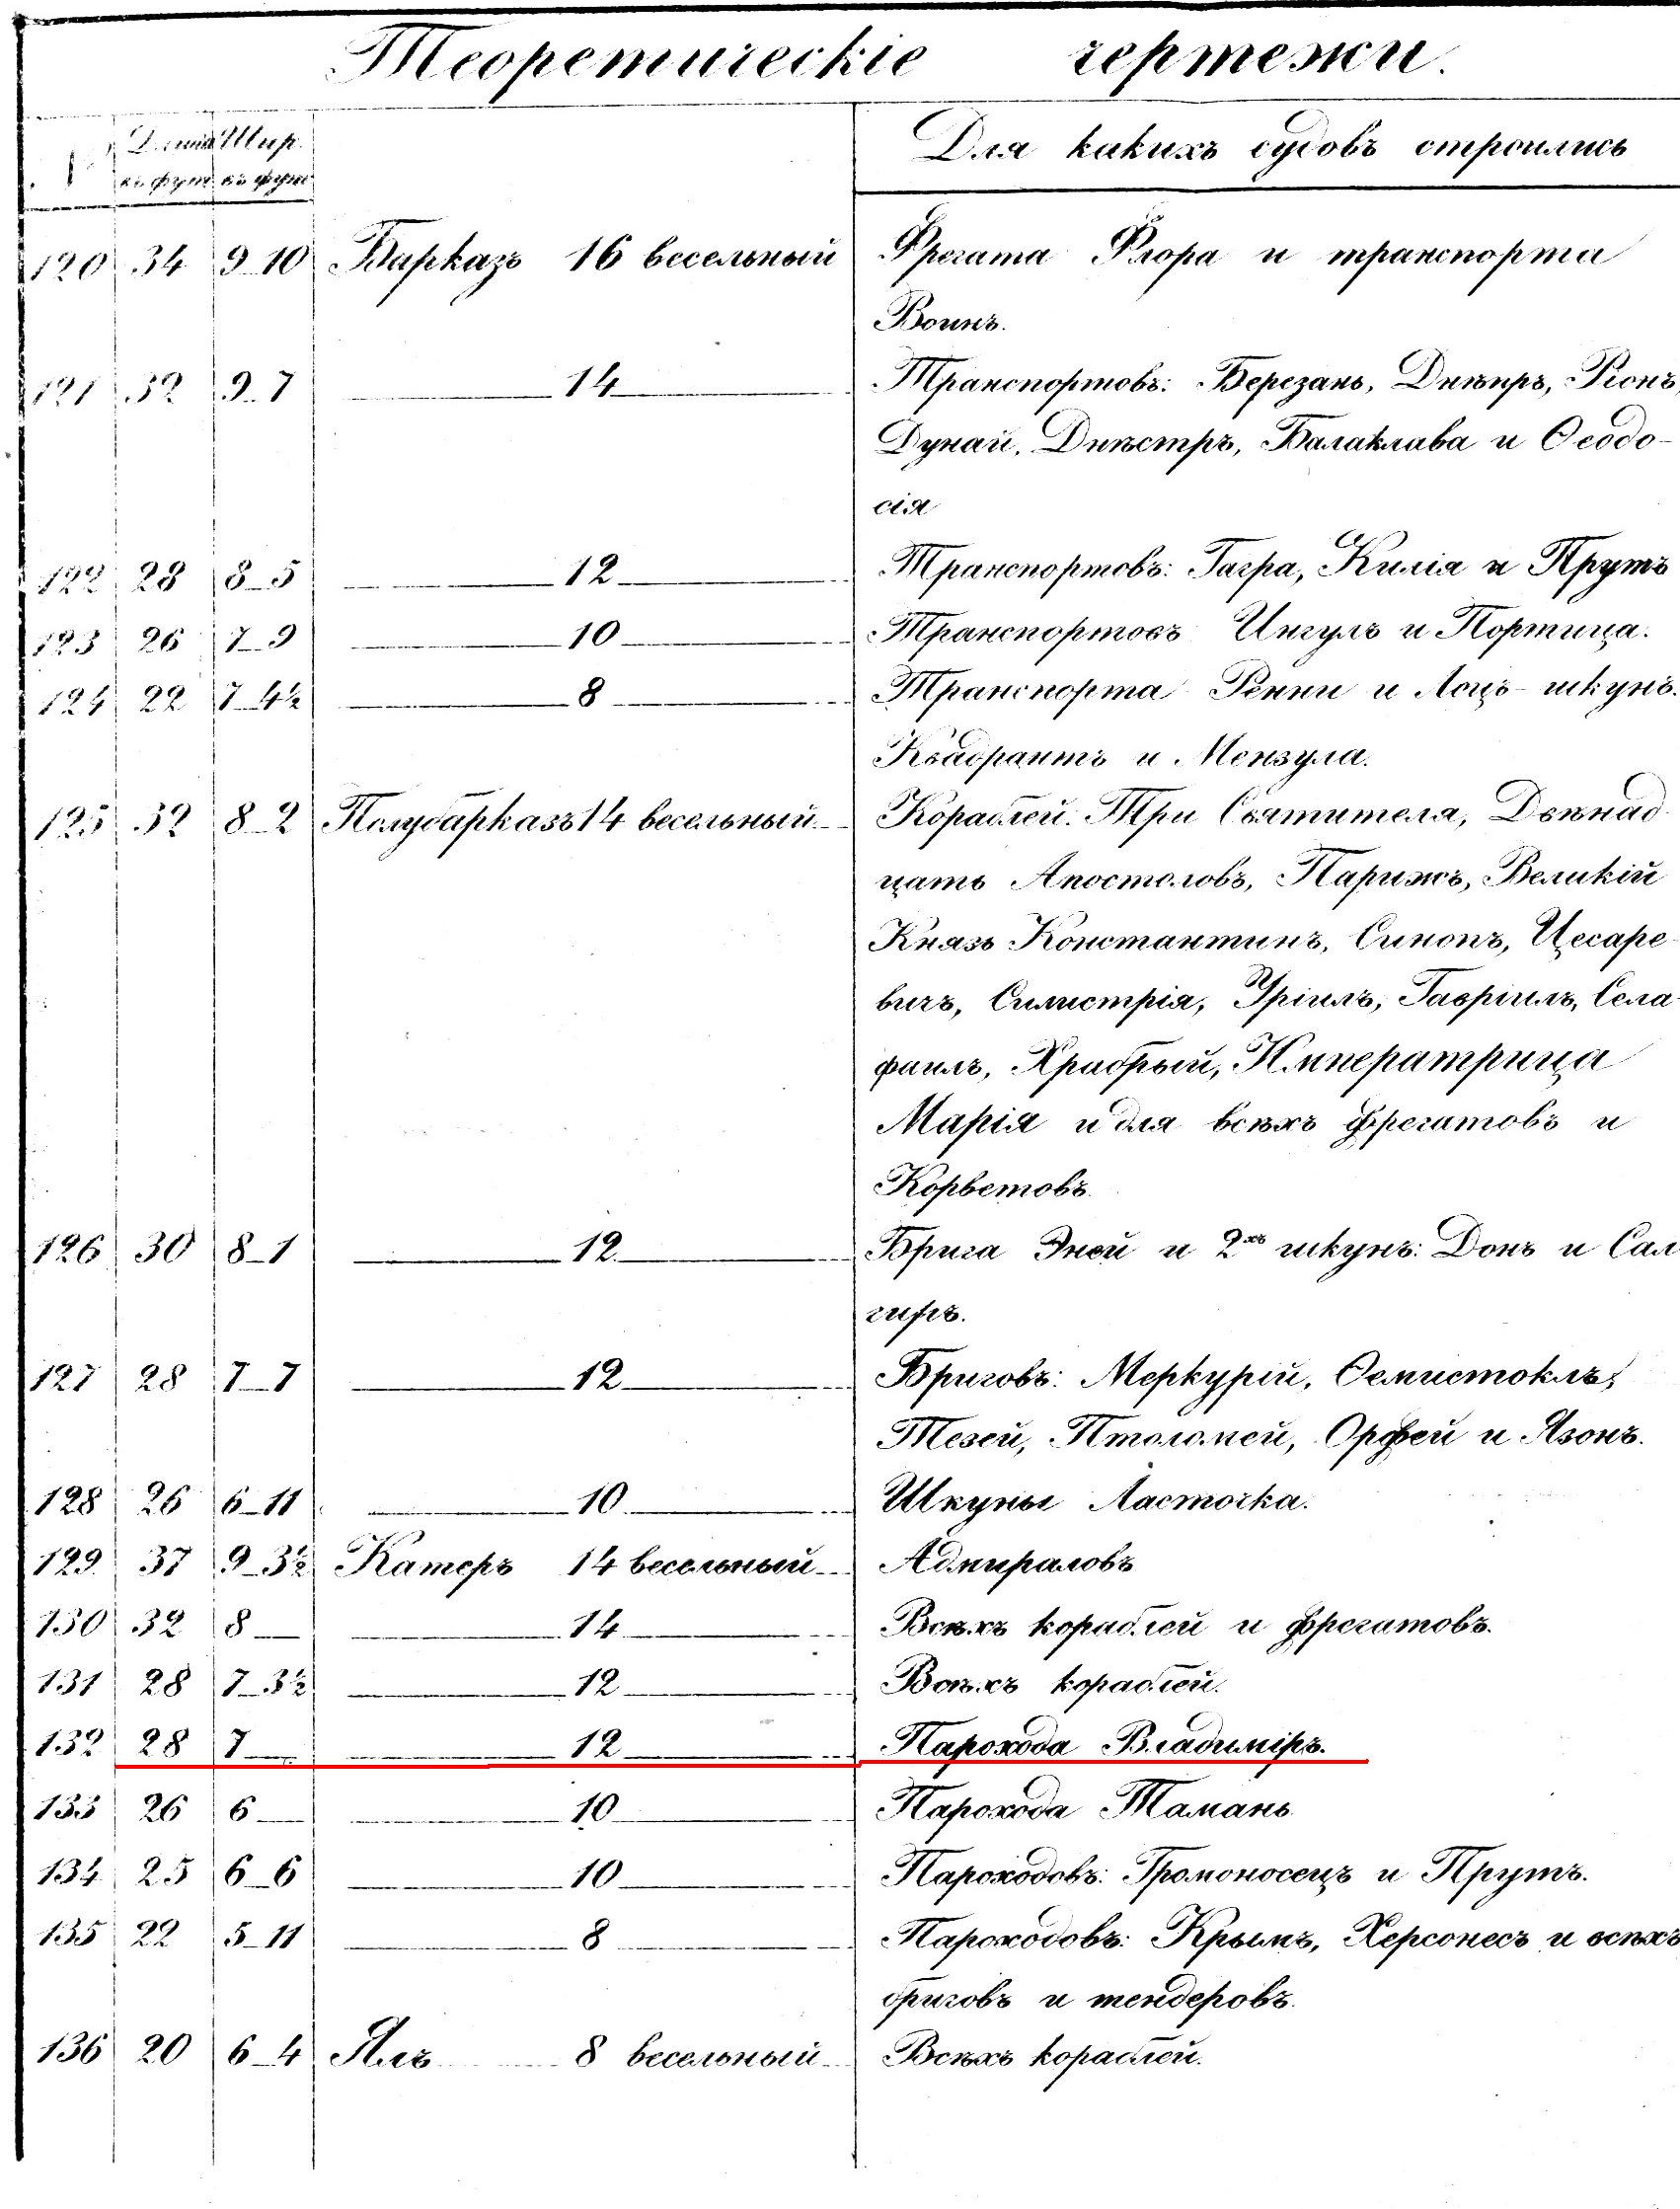 Теоретическіе чертежи.
Длина Шир.
въ фут въ фут
Для какихъ судовъ строились
120 34 9_10 Барказъ 16 весельный Фрегата Флора и транспорта
Воинъ.
121 32 9_7 14 Транспортовъ: Березань, Днѣпръ, Ріонъ,
Дунай, Днѣстръ, Балаклава и Ѳеодо-
сія
122 28 8_5 12 Транспортовъ: Гагра, Килія и Прутъ
123 26 7_9 10 Транспортовъ Ингулъ и Портица.
124 22 7_4½ 8 Транспорта Ренни и Лоцъ-шкунъ.
Квадрантъ и Мензула.
125 32 8_2 Полубарказъ 14 весельный Кораблей: Три Святителя, Двѣнад-
цать Апостоловъ, Парижъ, Великій
Князь Константинъ, Синопъ, Цесаре-
вичъ, Силистрія, Уріилъ, Гавріилъ, Села-
фаилъ, Храбрый, Императрица
Марія и для всѣхъ фрегатовъ и
Корветовъ.
126 30 8_1 12 Брига Эней и 2хъ шкунъ: Донъ и Сал-
гиръ.
127 28 7_7 12 Бриговъ: Меркурій, Ѳемистоклъ,
Тезей, Птоломей, Орфей и Язонъ.
128 26 6_11 10 Шкуны Ласточка.
129 37 9_3½ Катеръ 14 весельный Адмираловъ
130 32 8 14 Всѣхъ кораблей и фрегатовъ.
131 28 7_3½ 12 Всѣхъ кораблей.
132 28 7 12 Парохода Владиміръ.
133 26 6 10 Парохода Тамань
134 25 6_6 10 Пароходовъ: Громоносецъ и Прутъ.
135 22 5_11 8 Пароходовъ: Крымъ, Херсонесъ и всѣхъ
бриговъ и тендеровъ.
136 20 6_4 Ялъ 8 весельный Всѣхъ кораблей.